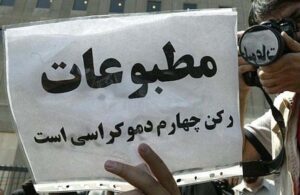 مطبوعات
رکن چهارم دموکراسی است